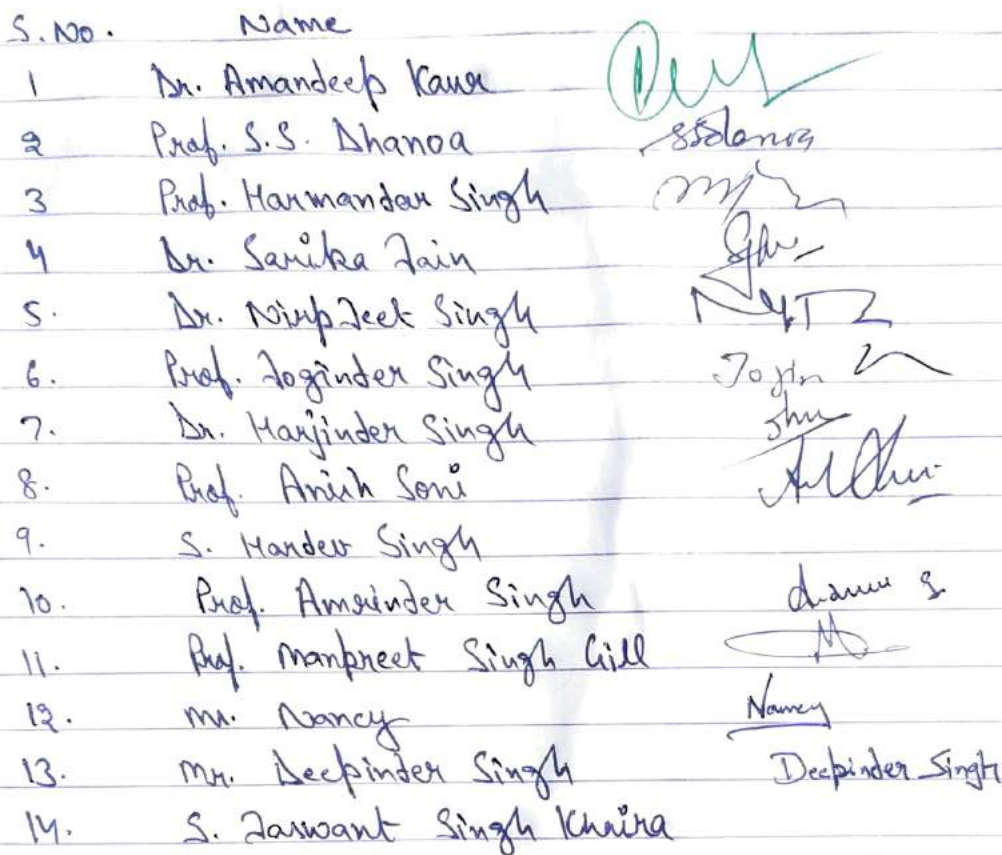 S. No. Name
1 Dr. Amandeep Kaur
2 Prof. S.S. Dhanoa ssdhanoa
3 Prof. Harmandar Singh
4 Dr. Sarika Jain
5. Dr. NirpJeet Singh
6. Prof. Joginder Singh Jogin
7. Dr. Harjinder Singh
8. Prof. Anish Soni
9. S. Hardev Singh
10. Prof. Amrinder Singh
11. Prof. Manpreet Singh Gill
12. Mr. Nancy Nancy
13. Mr. Deepinder Singh Deepinder Singh
14. S. Jaswant Singh Khaira